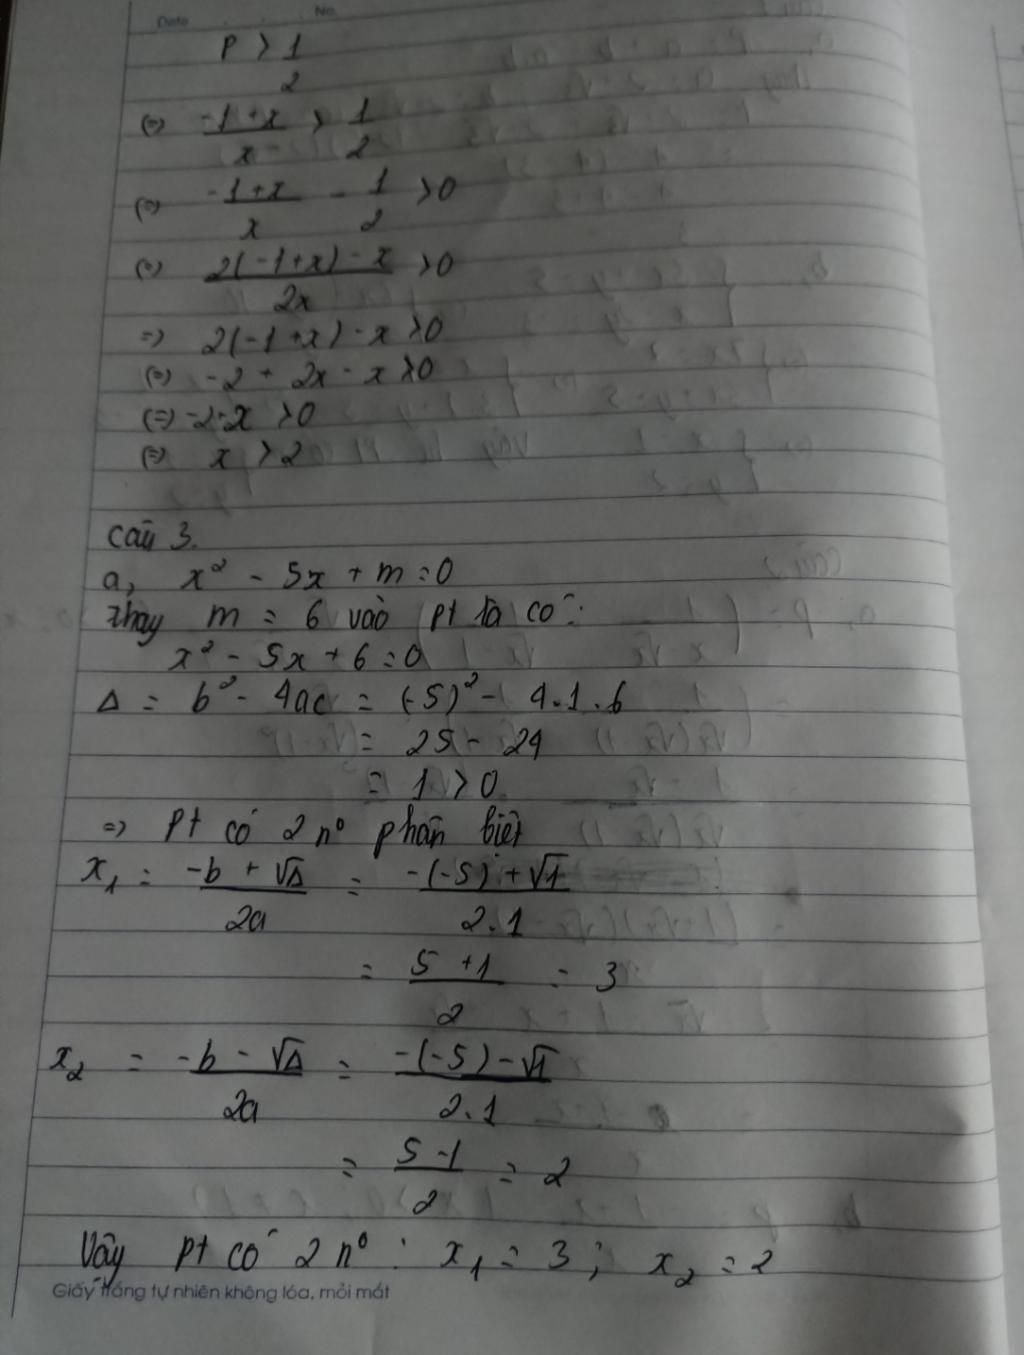 Date No.
P > 1/2
(=) (-1+x)/x > 1/2
(=) (-1+x)/x - 1/2 > 0
(=) (2(-1+x)-x)/2x > 0
=) 2(-1+x)-x > 0
(=) -2 + 2x - x > 0
(=) -2+x > 0
(=) x > 2
Câu 3.
a, x² - 5x + m = 0
thay m = 6 vào pt ta có:
x² - 5x + 6 = 0
Δ = b² - 4ac = (-5)² - 4.1.6
= 25 - 24
= 1 > 0
=) pt có 2 n⁰ phân biệt
x₁ = (-b + √Δ)/2a = (-(-5)+√1)/2.1
= (5+1)/2 = 3
x₂ = (-b - √Δ)/2a = (-(-5)-√1)/2.1
= (5-1)/2 = 2
Vậy pt có 2 n⁰ : x₁ = 3 ; x₂ = 2
Giấy trắng tự nhiên không lóa, mỏi mắt